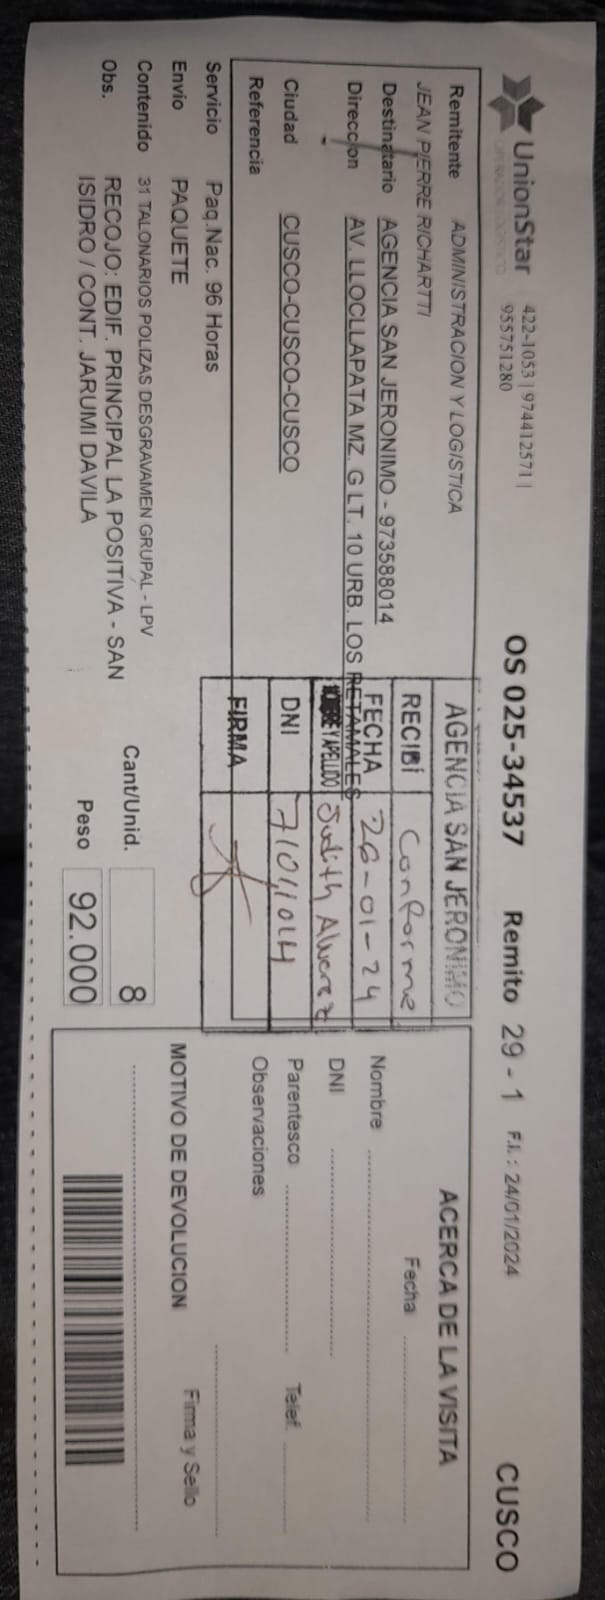 UnionStar
OPERADOR LOGISTICO
422-1053 | 974412571 |
955751280
OS 025-34537 Remito 29 - 1 F.I. : 24/01/2024 CUSCO
Remitente ADMINISTRACION Y LOGISTICA
JEAN PIERRE RICHARTTI
Destinatario AGENCIA SAN JERONIMO - 973588014
Direccion AV. LLOCLLAPATA MZ. G LT. 10 URB. LOS RETAMALES
Ciudad CUSCO-CUSCO-CUSCO
Referencia
Servicio Paq.Nac. 96 Horas
Envio PAQUETE
Contenido 31 TALONARIOS POLIZAS DESGRAVAMEN GRUPAL - LPV
Obs. RECOJO: EDIF. PRINCIPAL LA POSITIVA - SAN
ISIDRO / CONT. JARUMI DAVILA
Cant/Unid. 8
Peso 92.000
AGENCIA SAN JERONIMO
RECIBÍ Conforme
FECHA 26-01-24
NOMBRE Y APELLIDO Judith Alvarez
DNI
FIRMA
ACERCA DE LA VISITA
Fecha
Nombre
DNI
Parentesco Telef.
Observaciones
MOTIVO DE DEVOLUCION
Firma y Sello